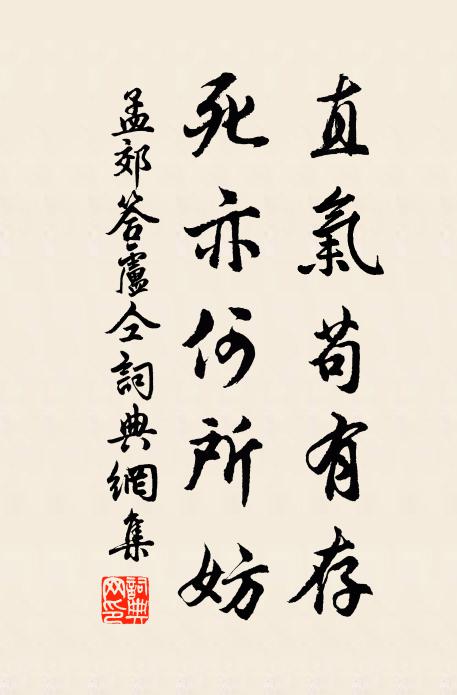 直氣苟有存
死亦何所妨
孟郊答盧仝詞典網集
詞典網印